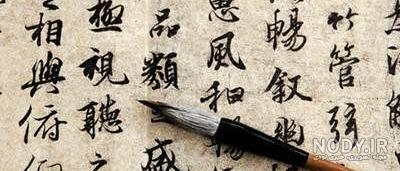 竹管弦
暢叙幽
惠風和暢
品類之盛
極視聽之
之相與俯仰
NODY.IR